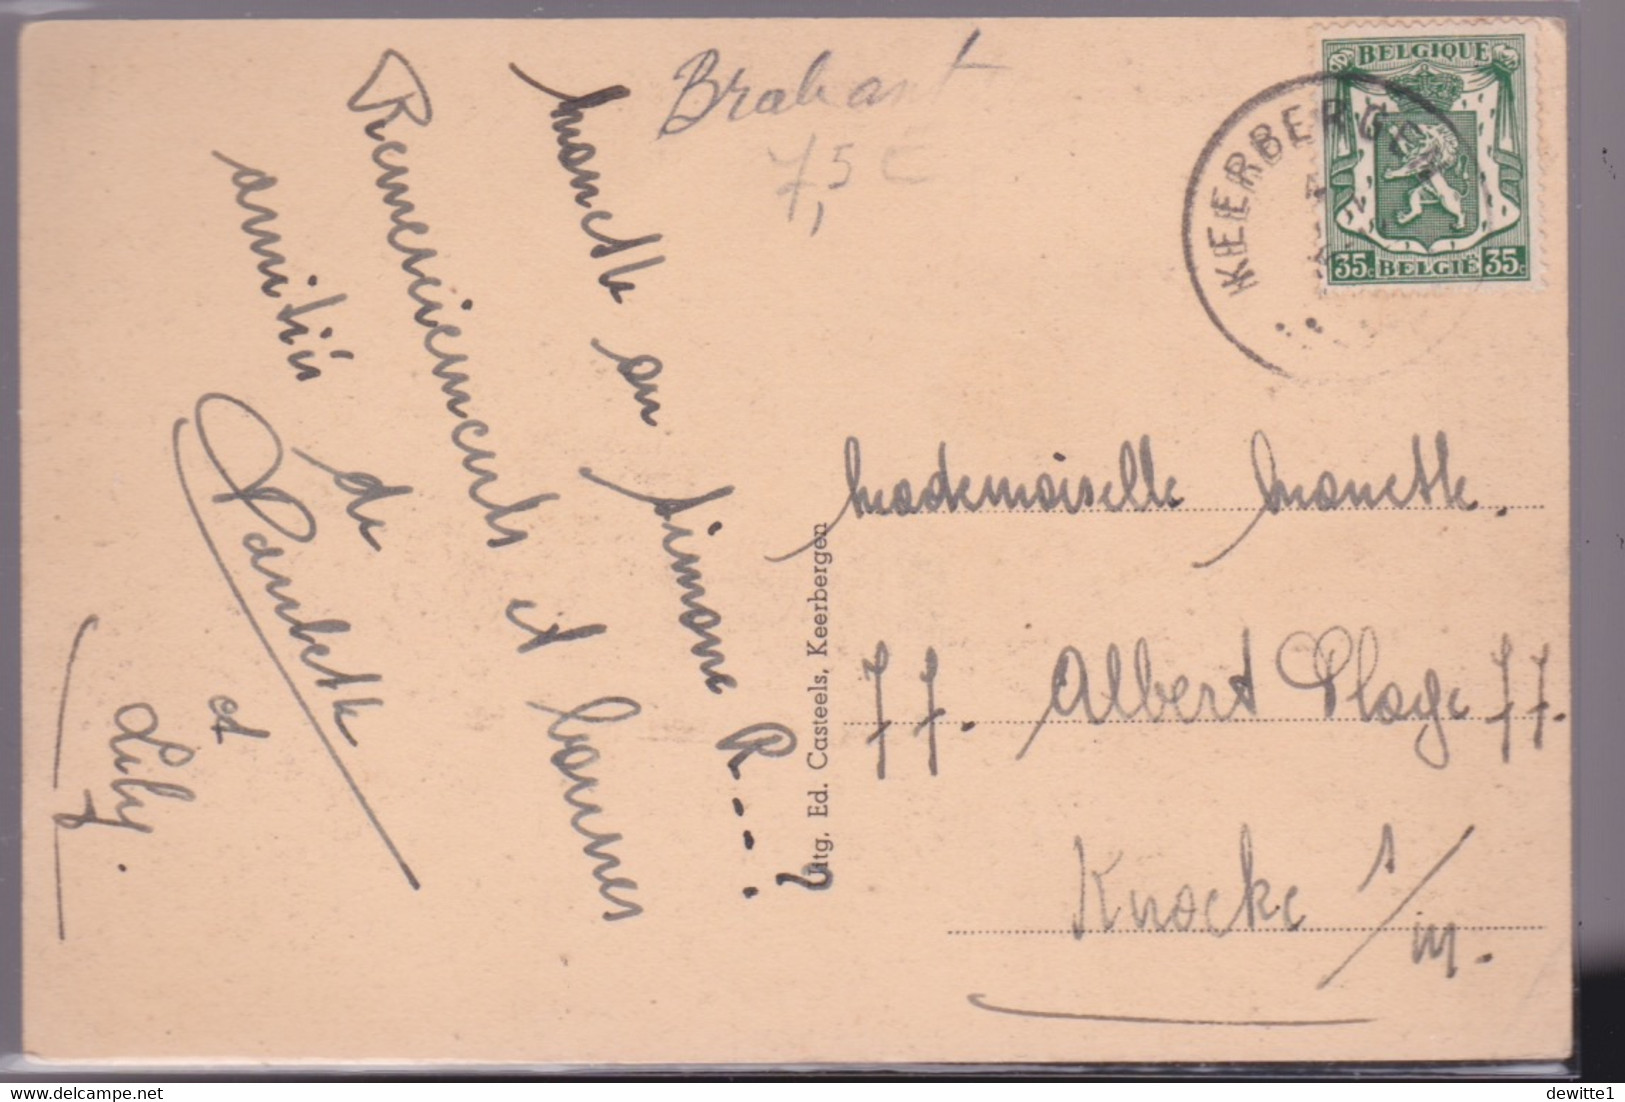 Brabant
7,5 €
Monette ou Simone R---!
?
Remerciements et bonnes
amitiés de
Paulette
et
Lily.
Uitg. Ed. Casteels, Keerbergen
BELGIQUE
35c BELGIË 35c
KEERBERGEN
Mademoiselle Monette.
77. Albert Plage 77.
Knocke s/m.
delcampe.net
dewitte1